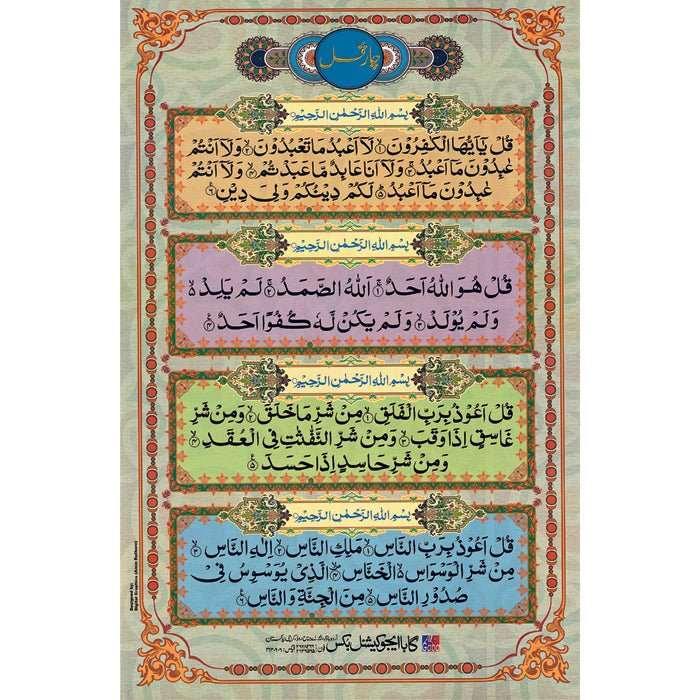 چار قل
بِسْمِ اللهِ الرَّحْمٰنِ الرَّحِيْمِ
قُلْ يٰۤاَيُّهَا الْكٰفِرُوْنَ ۙ۱ لَاۤ اَعْبُدُ مَا تَعْبُدُوْنَ ۙ۲ وَلَاۤ اَنْتُمْ
عٰبِدُوْنَ مَاۤ اَعْبُدُ ۚ۳ وَلَاۤ اَنَا عَابِدٌ مَّا عَبَدْتُّمْ ۙ۴ وَلَاۤ اَنْتُمْ
عٰبِدُوْنَ مَاۤ اَعْبُدُ ؕ۵ لَكُمْ دِيْنُكُمْ وَلِيَ دِيْنِ ۶
بِسْمِ اللهِ الرَّحْمٰنِ الرَّحِيْمِ
قُلْ هُوَ اللهُ اَحَدٌ ۚ۱ اَللهُ الصَّمَدُ ۚ۲ لَمْ يَلِدْ ۙ۬
وَلَمْ يُوْلَدْ ۙ۳ وَلَمْ يَكُنْ لَّهٗ كُفُوًا اَحَدٌ ۴
بِسْمِ اللهِ الرَّحْمٰنِ الرَّحِيْمِ
قُلْ اَعُوْذُ بِرَبِّ الْفَلَقِ ۙ۱ مِنْ شَرِّ مَا خَلَقَ ۙ۲ وَمِنْ شَرِّ
غَاسِقٍ اِذَا وَقَبَ ۙ۳ وَمِنْ شَرِّ النَّفّٰثٰتِ فِي الْعُقَدِ ۙ۴
وَمِنْ شَرِّ حَاسِدٍ اِذَا حَسَدَ ۵
بِسْمِ اللهِ الرَّحْمٰنِ الرَّحِيْمِ
قُلْ اَعُوْذُ بِرَبِّ النَّاسِ ۙ۱ مَلِكِ النَّاسِ ۙ۲ اِلٰهِ النَّاسِ ۙ۳
مِنْ شَرِّ الْوَسْوَاسِ ۙ۬ الْخَنَّاسِ ۙ۴ الَّذِيْ يُوَسْوِسُ فِيْ
صُدُوْرِ النَّاسِ ۙ۵ مِنَ الْجِنَّةِ وَالنَّاسِ ۶
Designed by:
Digital Graphics (Amin Badham)
گابا ایجوکیشنل بکس
gaba